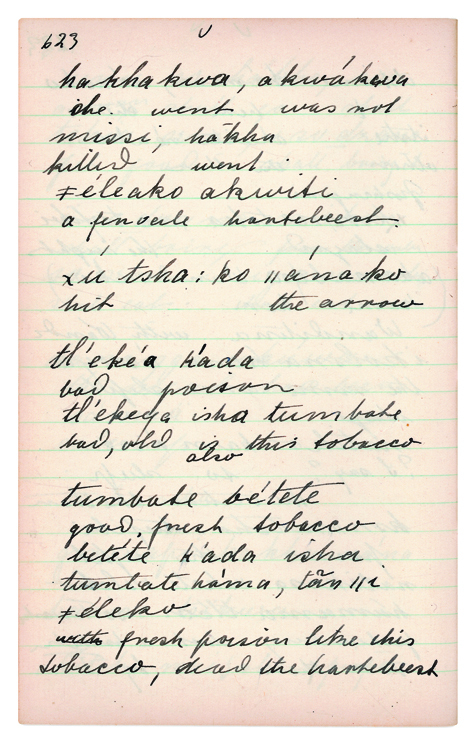 623
hakhakwa, akwákwa
she went was not
missi hákha
killed went
ǂéleako akwiti
a female hartebeest.
xú tska: ko ǁánako
hit the arrow
tl'ekéa k'ada
bad poison
tl'ekega isha tumbate
bad, old is this tobacco
also
tumbate bétete
good, fresh tobacco
betété k'ada isha
tumbate háma, tãn ǁi
ǂéleko
fresh poison like this
tobacco, dead the hartebeest